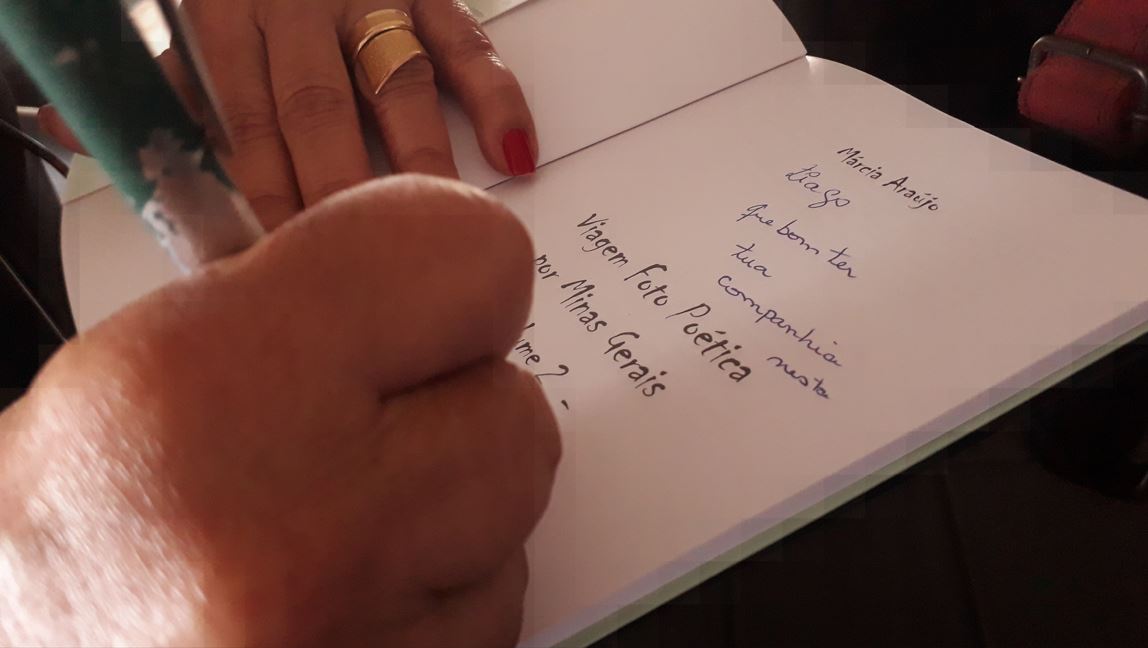 Márcia Araújo
tiago
que bom ter
tua
companhia
nesta
Viagem Foto Poética
por Minas Gerais
2 -